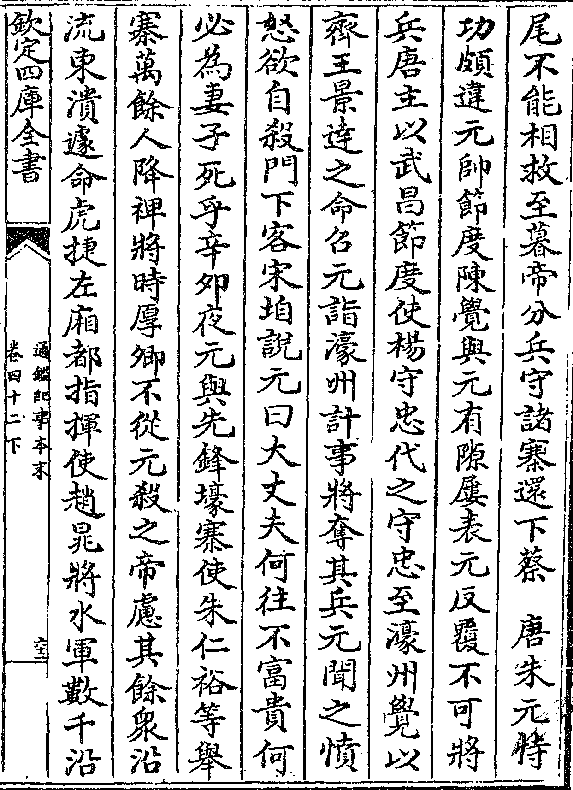 尾不能相救至暮帝分兵守諸寨還下蔡　唐朱元恃
功頗違元帥節度陳覺與元有隙屢表元反覆不可將
兵唐主以武昌節度使楊守忠代之守忠至濠州覺以
齊王景達之命召元詣濠州計事將奪其兵元聞之憤
怒欲自殺門下客宋垍說元曰大丈夫何往不富貴何
必為妻子死乎辛夘夜元與先鋒壕寨使朱仁裕等舉
寨萬餘人降裨將時厚卿不從元殺之帝慮其餘衆沿
流東潰遽命虎捷左廂都指揮使趙晁將水軍數千沿
欽定四庫全書
通鑑紀事本末
卷四十二下